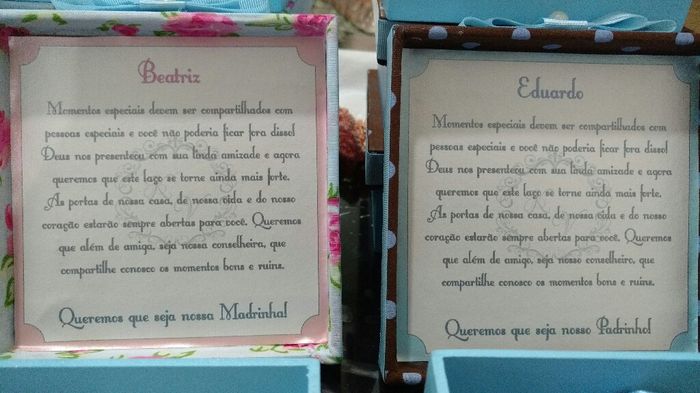 Beatriz
Momentos especiais devem ser compartilhados com
pessoas especiais e você não poderia ficar fora disso!
Deus nos presenteou com sua linda amizade e agora
queremos que este laço se torne ainda mais forte.
As portas de nossa casa, de nossa vida e do nosso
coração estarão sempre abertas para você. Queremos
que além de amiga, seja nossa conselheira, que
compartilhe conosco os momentos bons e ruins.
Queremos que seja nossa Madrinha!
Eduardo
Momentos especiais devem ser compartilhados com
pessoas especiais e você não poderia ficar fora disso!
Deus nos presenteou com sua linda amizade e agora
queremos que este laço se torne ainda mais forte.
As portas de nossa casa, de nossa vida e do nosso
coração estarão sempre abertas para você. Queremos
que além de amigo, seja nosso conselheiro, que
compartilhe conosco os momentos bons e ruins.
Queremos que seja nosso Padrinho!